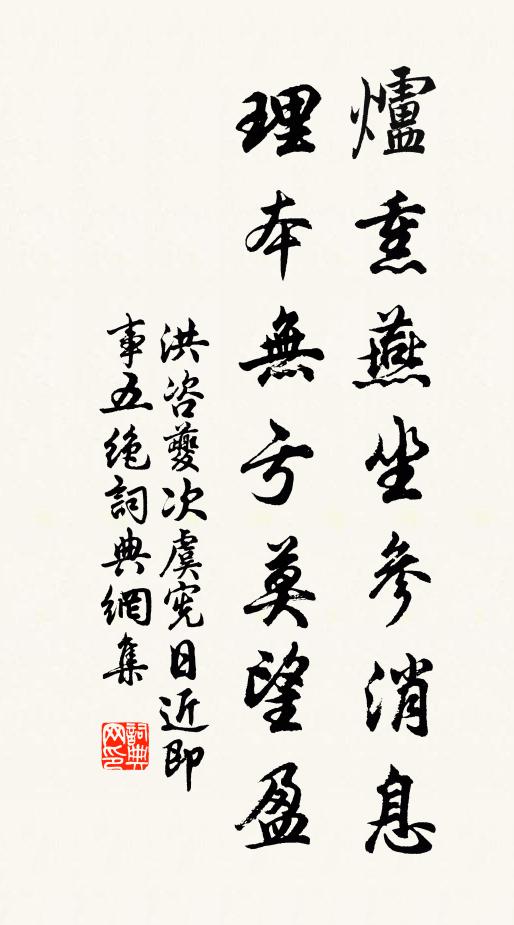 爐熏燕坐參消息
理本無亏莫望盈
洪咨夔次虞宪日近即
事五絶詞典網集
詞典网印